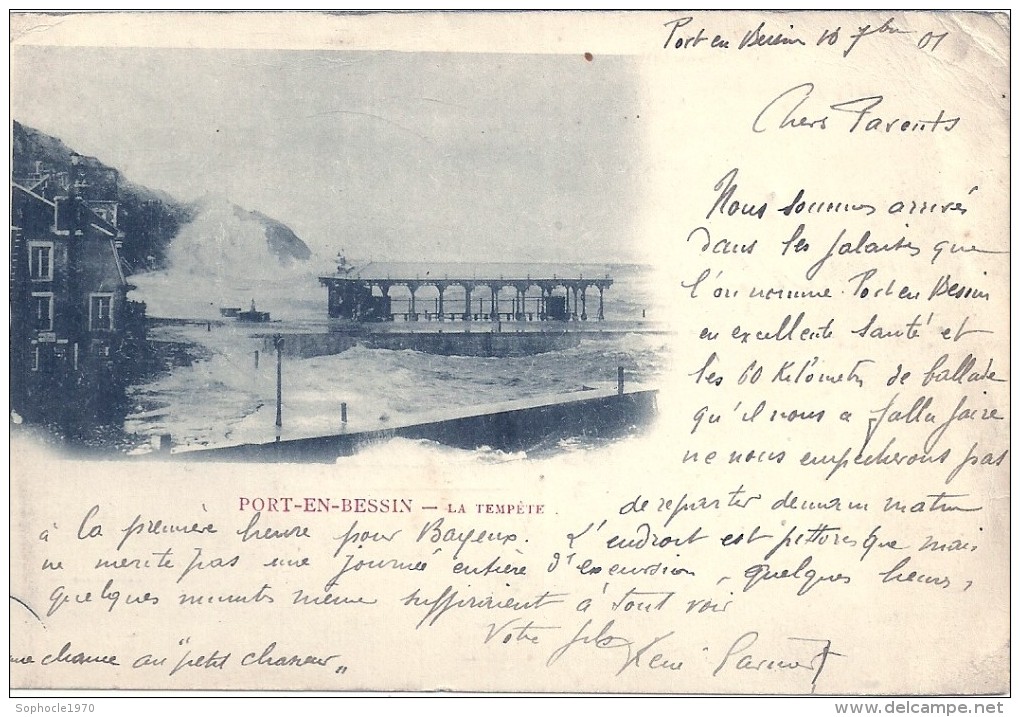 Port en Bessin 10 7bre 01
Chers Parents
Nous sommes arrivés
dans les falaises que
l'on nomme Port en Bessin
en excellente santé et
les 60 Kilomètres de ballade
qu'il nous a fallu faire
ne nous empêcherons pas
de repartir demain matin
PORT-EN-BESSIN — LA TEMPÊTE.
à la première heure pour Bayeux. L'endroit est pittoresque mais
ne merite pas une journée entière d'excursion, quelques heures,
quelques minutes même suffiraient à tout voir
Votre fils René
chance au "petit chasseur"
Sophocle1970
www.delcampe.net